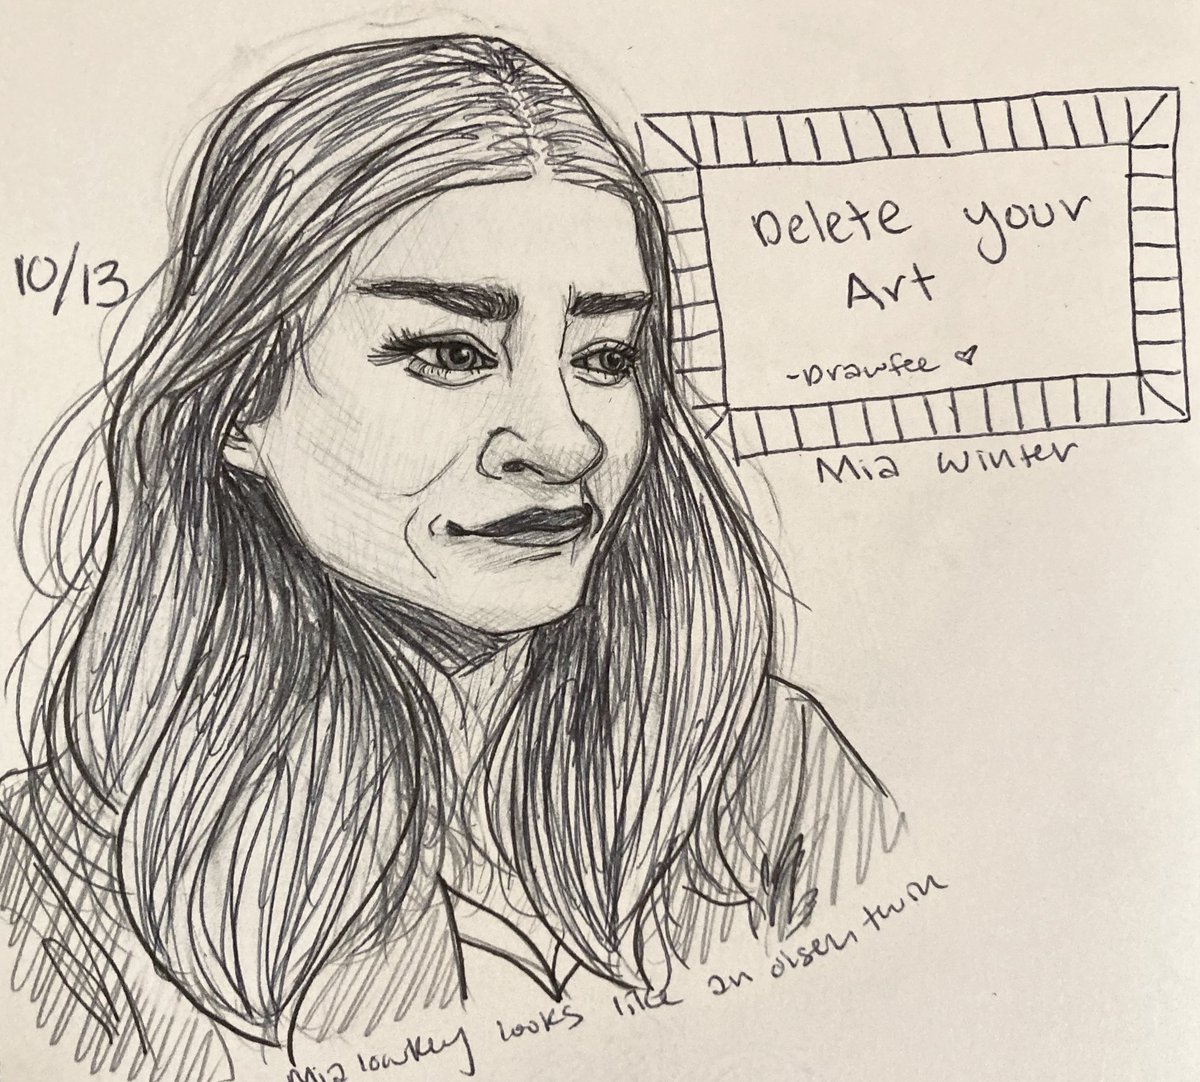 10/13
Delete your
Art
-Drawfee ♡
Mia Winter
Mia lowkey looks like an olsen twin